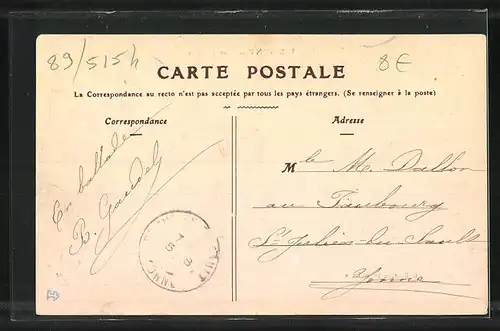 89/515h
8€
CARTE POSTALE
La Correspondance au recto n'est pas acceptée par tous les pays étrangers. (Se renseigner à la poste)
Correspondance
Adresse
En ballade
B. Gaudel
Mlle M. Dallon
au Faubourg
St Julien-du-Sault
Yonne